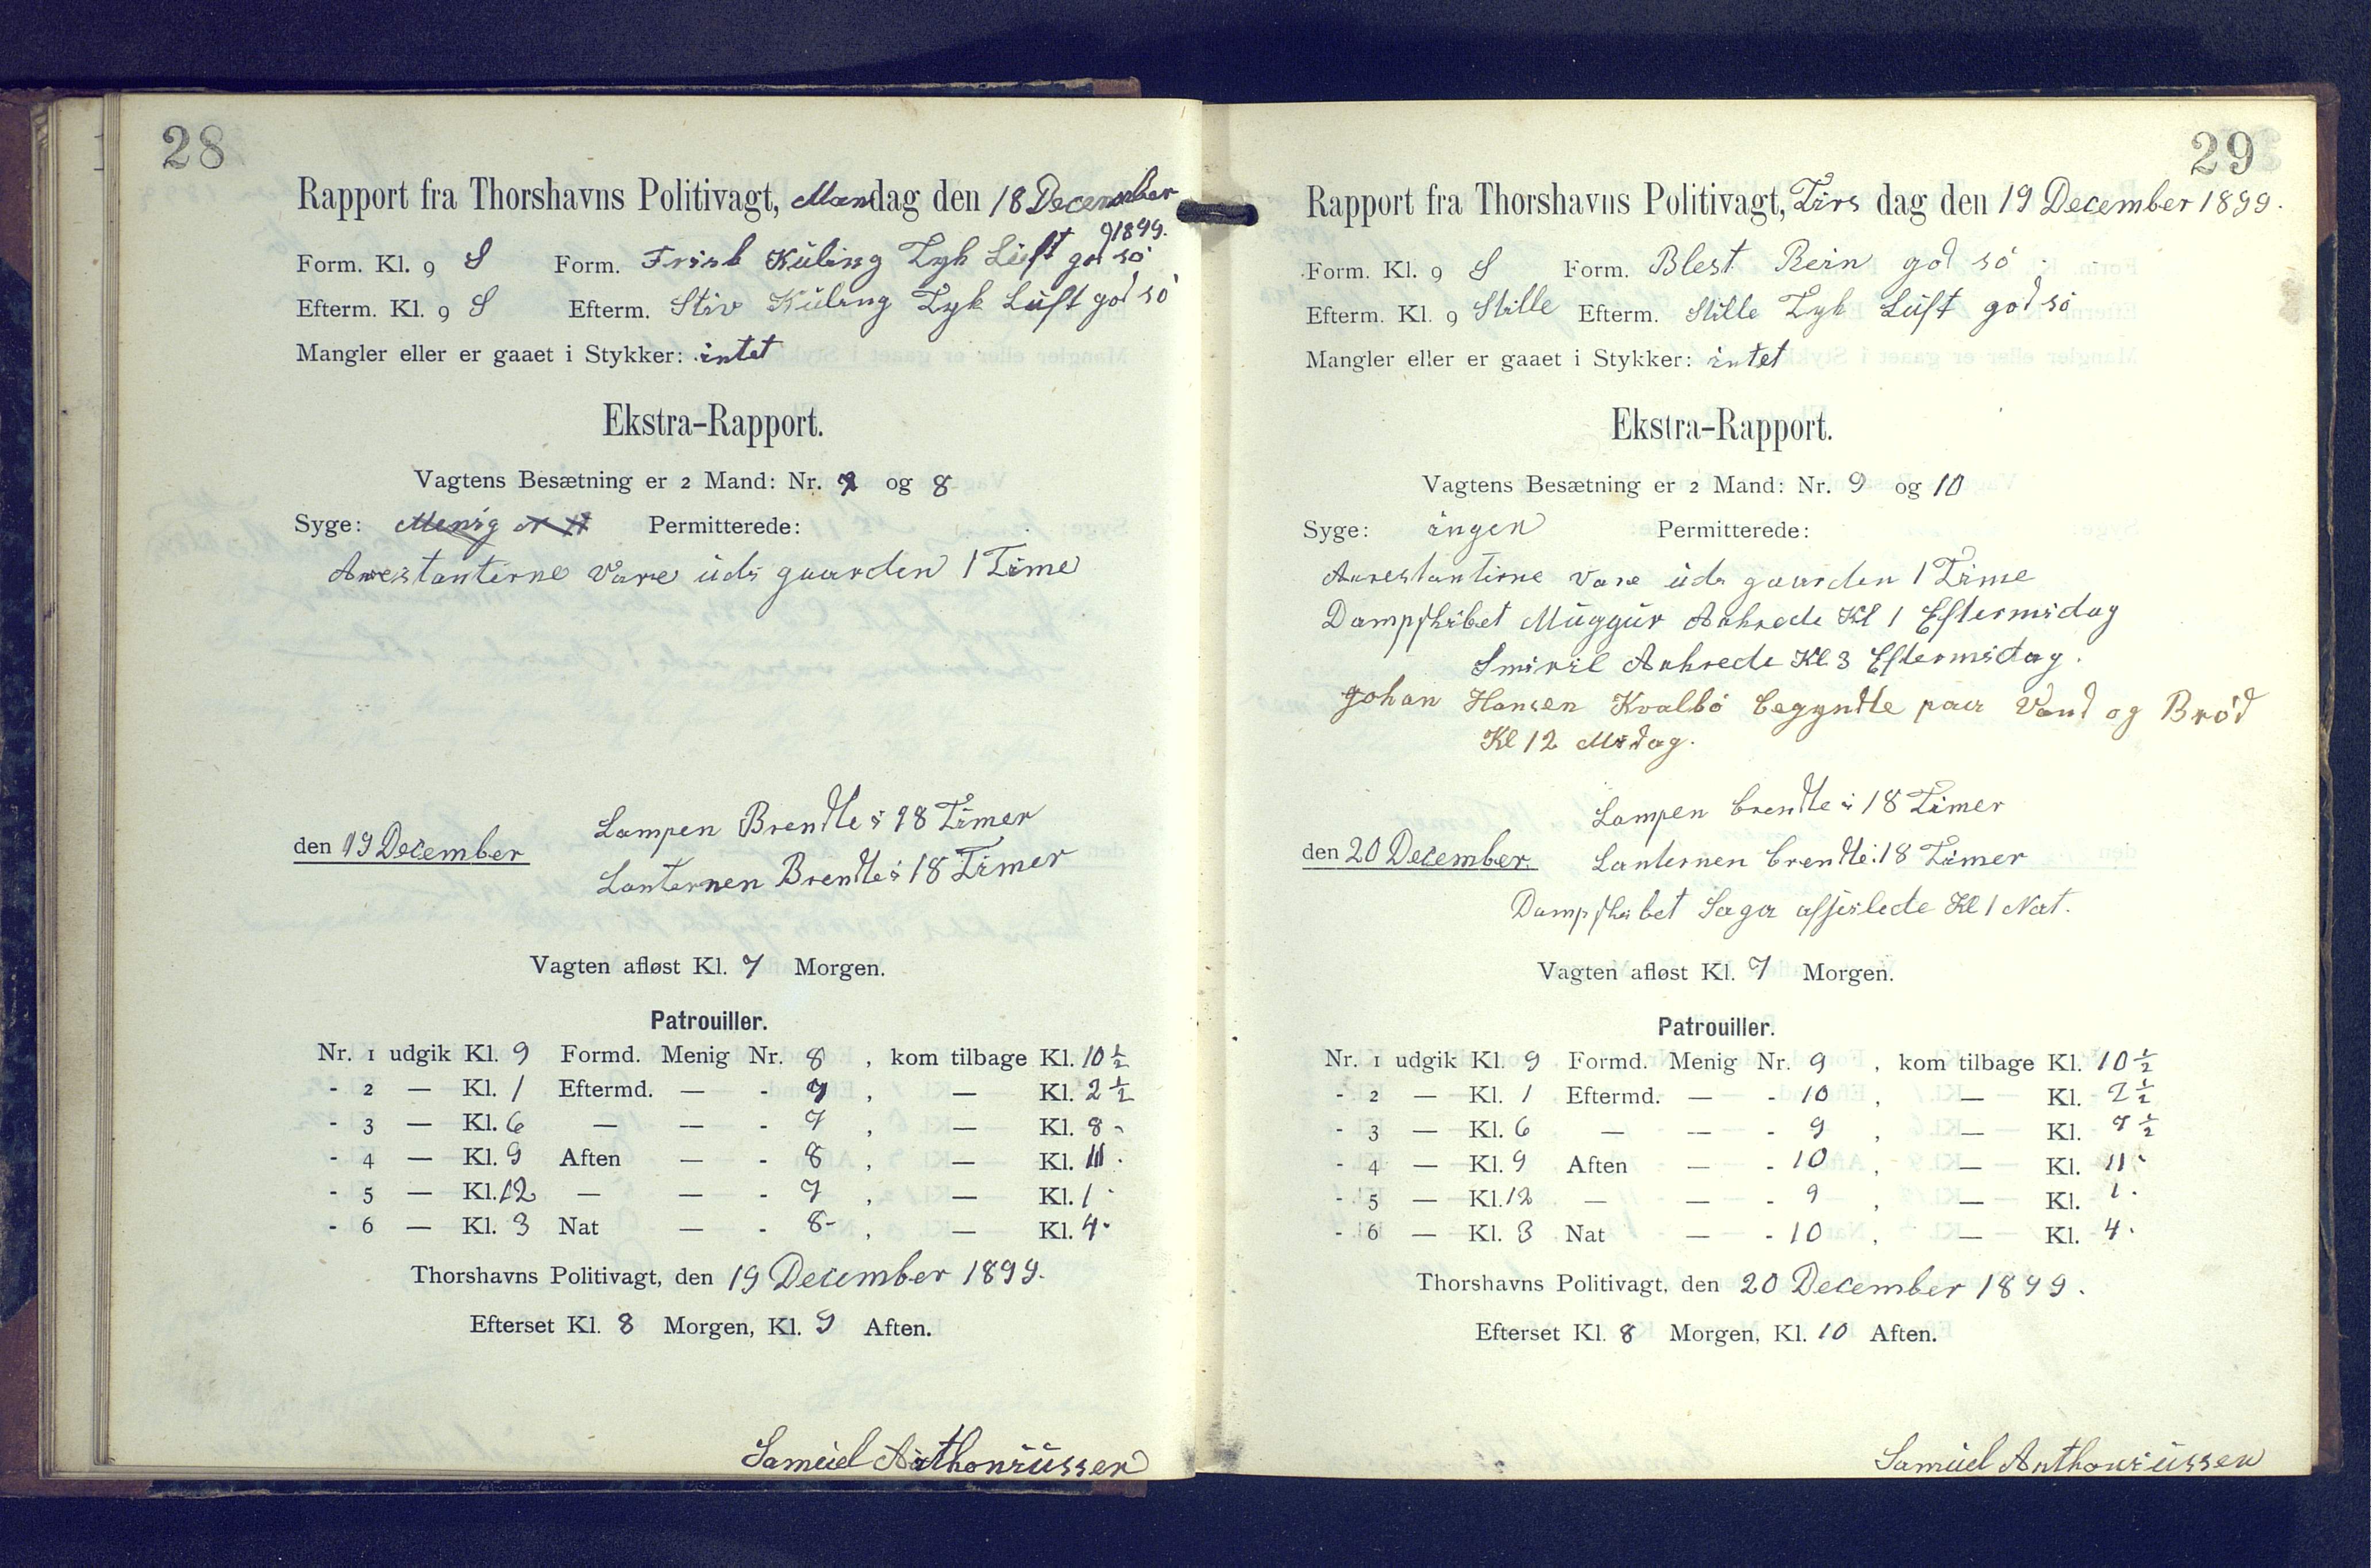 28
Rapport fra Thorshavns Politivagt, Mandag den 18 December
1899.
Form. Kl. 9 S Form. Frisk Kuling Tyk Luft god sö
Efterm. Kl. 9 S Efterm. Stiv Kuling Tyk Luft god sö
Mangler eller er gaaet i Stykker: intet
Ekstra-Rapport.
Vagtens Besætning er 2 Mand: Nr. 7 og 8
Syge: Menig Permitterede:
Arrestanterne vare udi gaarden 1 Time
Lampen Brendte i 18 Timer
den 19 December
Lanternen Brendte i 18 Timer
Vagten afløst Kl. 7 Morgen.
Patrouiller.
Nr. 1 udgik Kl. 9 Formd. Menig Nr. 8 , kom tilbage Kl. 10 ½
- 2 — Kl. 1 Eftermd. — - 7 , — Kl. 2 ½
- 3 — Kl. 6 — — - 7 , — Kl. 8 -
- 4 — Kl. 9 Aften — - 8 , — Kl. 11 -
- 5 — Kl. 12 — — - 7 , — Kl. 1 -
- 6 — Kl. 3 Nat — - 8- , — Kl. 4 -
Thorshavns Politivagt, den 19 December 1899.
Efterset Kl. 8 Morgen, Kl. 9 Aften.
Samuel Anthoniussen
29
Rapport fra Thorshavns Politivagt, Tirs dag den 19 December 1899.
Form. Kl. 9 S Form. Blest Rein god sö
Efterm. Kl. 9 Stille Efterm. Stille Tyk Luft god sö
Mangler eller er gaaet i Stykker: intet
Ekstra-Rapport.
Vagtens Besætning er 2 Mand: Nr. 9 og 10
Syge: ingen Permitterede:
Arrestantirne vare udi gaarden 1 Time
Dampskibet Muggur Ankrede Kl 1 Eftermidag
Smiril Ankrede Kl. 3 Eftermidag.
Johan Hansen Kvalbö begyndte paa Vand og Bröd
Kl 12 Midag.
Lampen brendte i 18 Timer
den 20 December. Lanternen brendte i 18 Timer
Dampskibet Saga afseilede Kl 1 Nat.
Vagten afløst Kl. 7 Morgen.
Patrouiller.
Nr. 1 udgik Kl. 9 Formd. Menig Nr. 9 , kom tilbage Kl. 10 ½
- 2 — Kl. 1 Eftermd. — - 10 , — Kl. 2 ½
- 3 — Kl. 6 — — - 9 , — Kl. 7 ½
- 4 — Kl. 9 Aften — - 10 , — Kl. 11 -
- 5 — Kl. 12 — — - 9 , — Kl. 1 -
- 6 — Kl. 3 Nat — - 10 , — Kl. 4 -
Thorshavns Politivagt, den 20 December 1899.
Efterset Kl. 8 Morgen, Kl. 10 Aften.
Samuel Anthoniussen